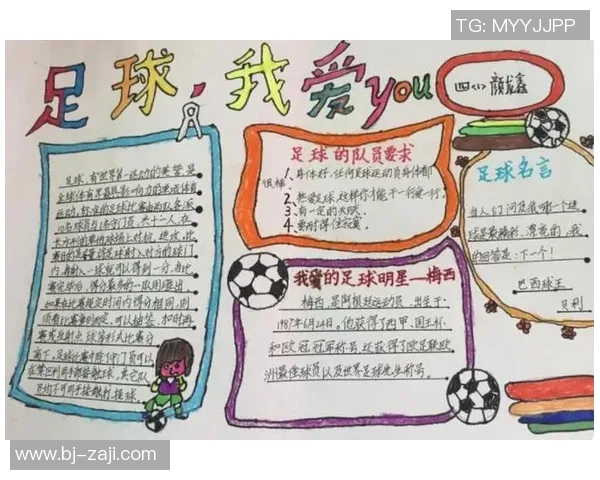 TG: MYYJJPP
足球,我爱you
四<1> 颜龙鑫
足球,有世界第一运动的美誉,是
全球体育界最具影响力的单项体育
运动,标准的足球比赛由两队各派
10名球员与1名守门员,共十二人,在
长方形的草地球场上对抗,进攻,比
赛目的是尽量将足球射入对方的球门
内,每射入一球就可以得到一分,当比
赛完毕后,得分最多的一队则胜出,
如果在比赛规定时间内得分相同,则
须看比赛章则而定,可以抽签、加时再
赛或互射点球等形式比赛分
高下,足球比赛中除了守门员可以
在禁区利用手部接触足球,其它队
员均不可用手接触打、接球
足球的队员要求
1.身体好,任何足球运动员身体都
很棒。
2.热爱足球,这样你才能干一行爱一行。
3.有一定的天赋
4.要耐得住寂寞。
我爱的足球明星—梅西
梅西,是阿根廷运动员,出生于
1987年6月24日。他获得了西甲、国王杯
和欧冠冠军称号,还获得了欧足联欧
洲最佳球员以及世界足球先生称号。
足球名言
当人们问及我哪一个进
球是最精彩,漂亮的,我
的回答是:下一个!
巴西球王
贝利
www.bj-zaji.com